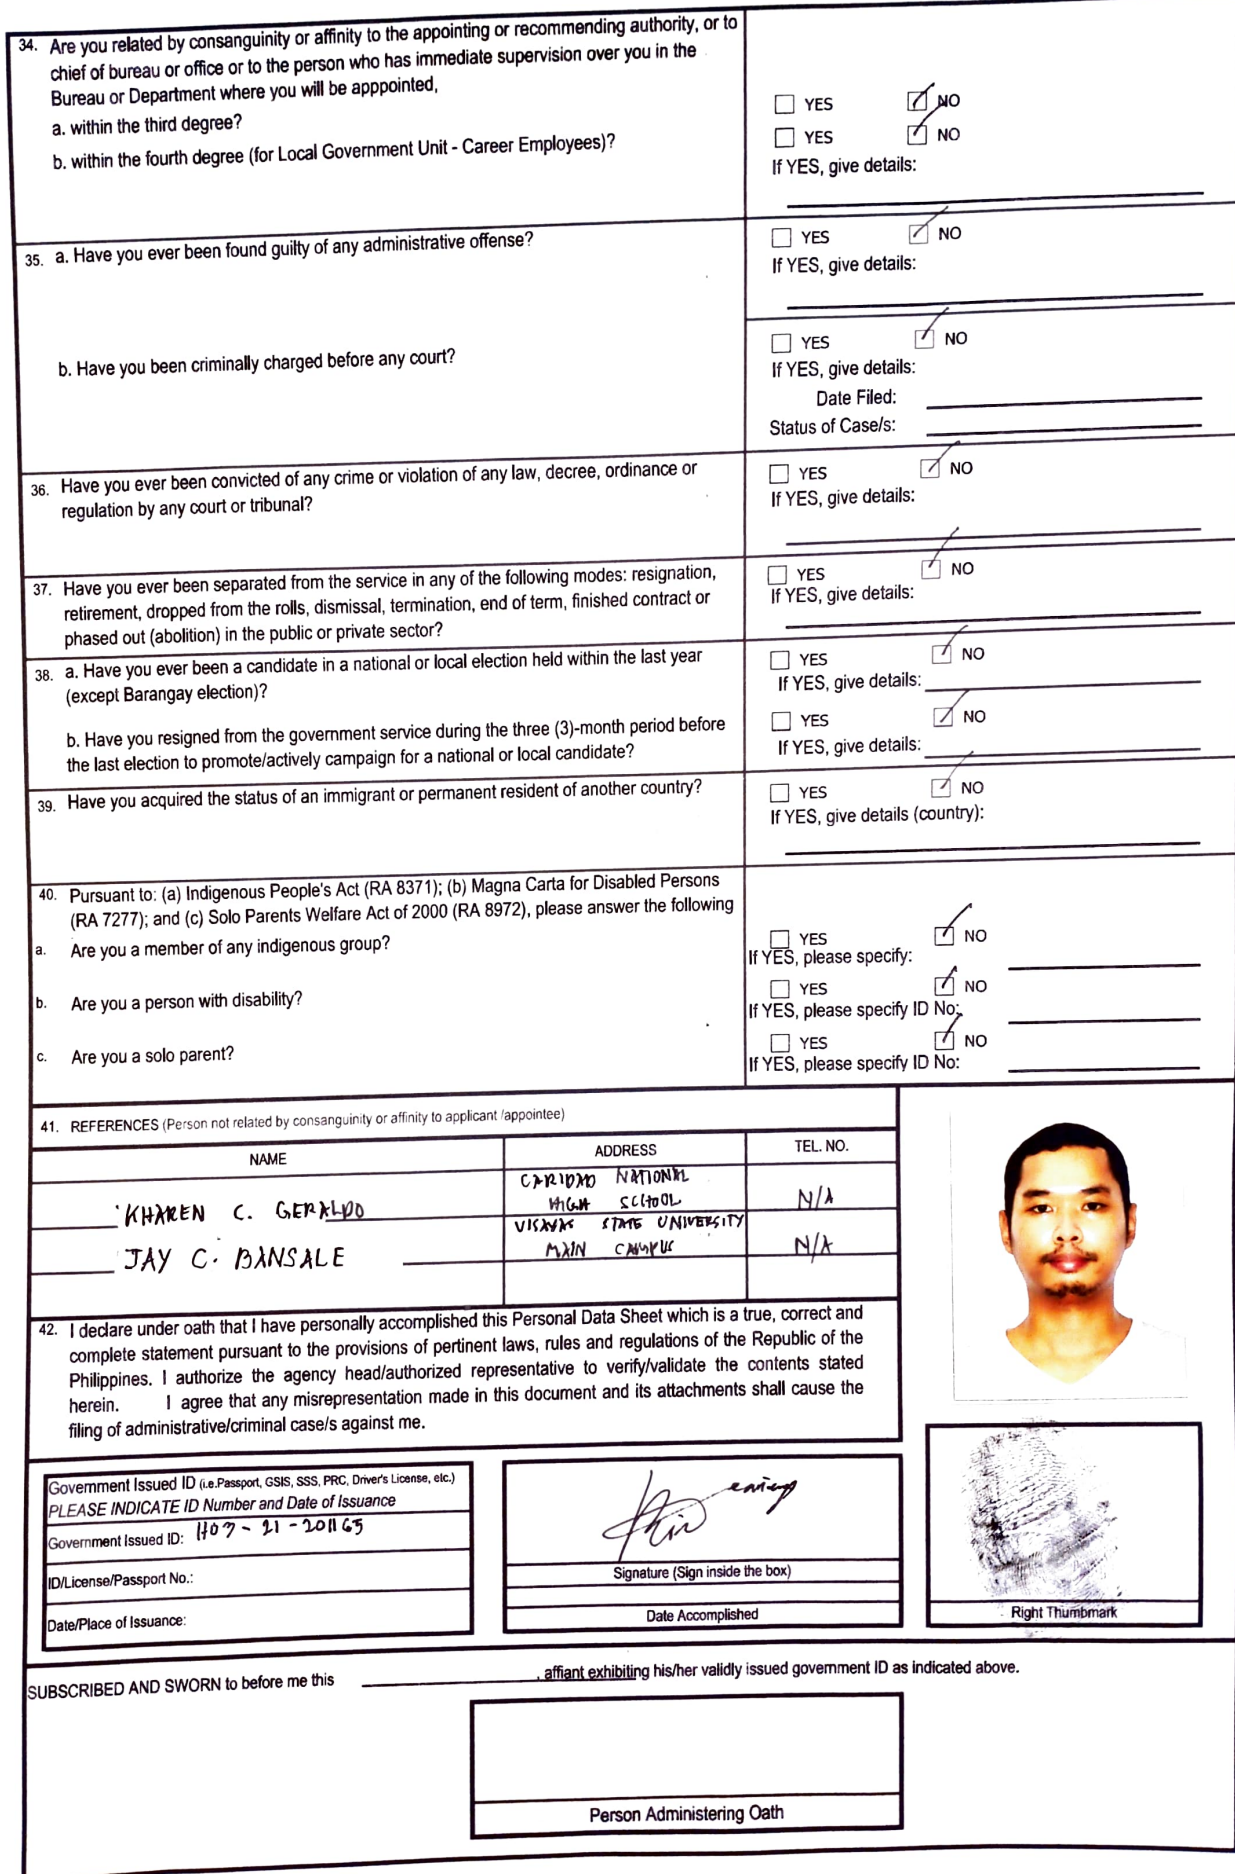 34. Are you related by consanguinity or affinity to the appointing or recommending authority, or to
chief of bureau or office or to the person who has immediate supervision over you in the
Bureau or Department where you will be apppointed,
a. within the third degree?
YES NO
b. within the fourth degree (for Local Government Unit - Career Employees)?
YES NO
If YES, give details:
35. a. Have you ever been found guilty of any administrative offense?
YES NO
If YES, give details:
b. Have you been criminally charged before any court?
YES NO
If YES, give details:
Date Filed:
Status of Case/s:
36. Have you ever been convicted of any crime or violation of any law, decree, ordinance or
regulation by any court or tribunal?
YES NO
If YES, give details:
37. Have you ever been separated from the service in any of the following modes: resignation,
retirement, dropped from the rolls, dismissal, termination, end of term, finished contract or
phased out (abolition) in the public or private sector?
YES NO
If YES, give details:
38. a. Have you ever been a candidate in a national or local election held within the last year
(except Barangay election)?
YES NO
If YES, give details:
b. Have you resigned from the government service during the three (3)-month period before
the last election to promote/actively campaign for a national or local candidate?
YES NO
If YES, give details:
39. Have you acquired the status of an immigrant or permanent resident of another country?
YES NO
If YES, give details (country):
40. Pursuant to: (a) Indigenous People's Act (RA 8371); (b) Magna Carta for Disabled Persons
(RA 7277); and (c) Solo Parents Welfare Act of 2000 (RA 8972), please answer the following
a. Are you a member of any indigenous group?
YES NO
If YES, please specify:
b. Are you a person with disability?
YES NO
If YES, please specify ID No:
c. Are you a solo parent?
YES NO
If YES, please specify ID No:
41. REFERENCES (Person not related by consanguinity or affinity to applicant /appointee)
NAME ADDRESS TEL. NO.
KHAREN C. GERALDO
CARIDAD NATIONAL
HIGH SCHOOL
N/A
JAY C. BANSALE
VISAYAS STATE UNIVERSITY
MAIN CAMPUS
N/A
42. I declare under oath that I have personally accomplished this Personal Data Sheet which is a true, correct and
complete statement pursuant to the provisions of pertinent laws, rules and regulations of the Republic of the
Philippines. I authorize the agency head/authorized representative to verify/validate the contents stated
herein. I agree that any misrepresentation made in this document and its attachments shall cause the
filing of administrative/criminal case/s against me.
Government Issued ID (i.e.Passport, GSIS, SSS, PRC, Driver's License, etc.)
PLEASE INDICATE ID Number and Date of Issuance
Government Issued ID: H03-21-201165
ID/License/Passport No.:
Date/Place of Issuance:
Signature (Sign inside the box)
Date Accomplished
Right Thumbmark
SUBSCRIBED AND SWORN to before me this , affiant exhibiting his/her validly issued government ID as indicated above.
Person Administering Oath